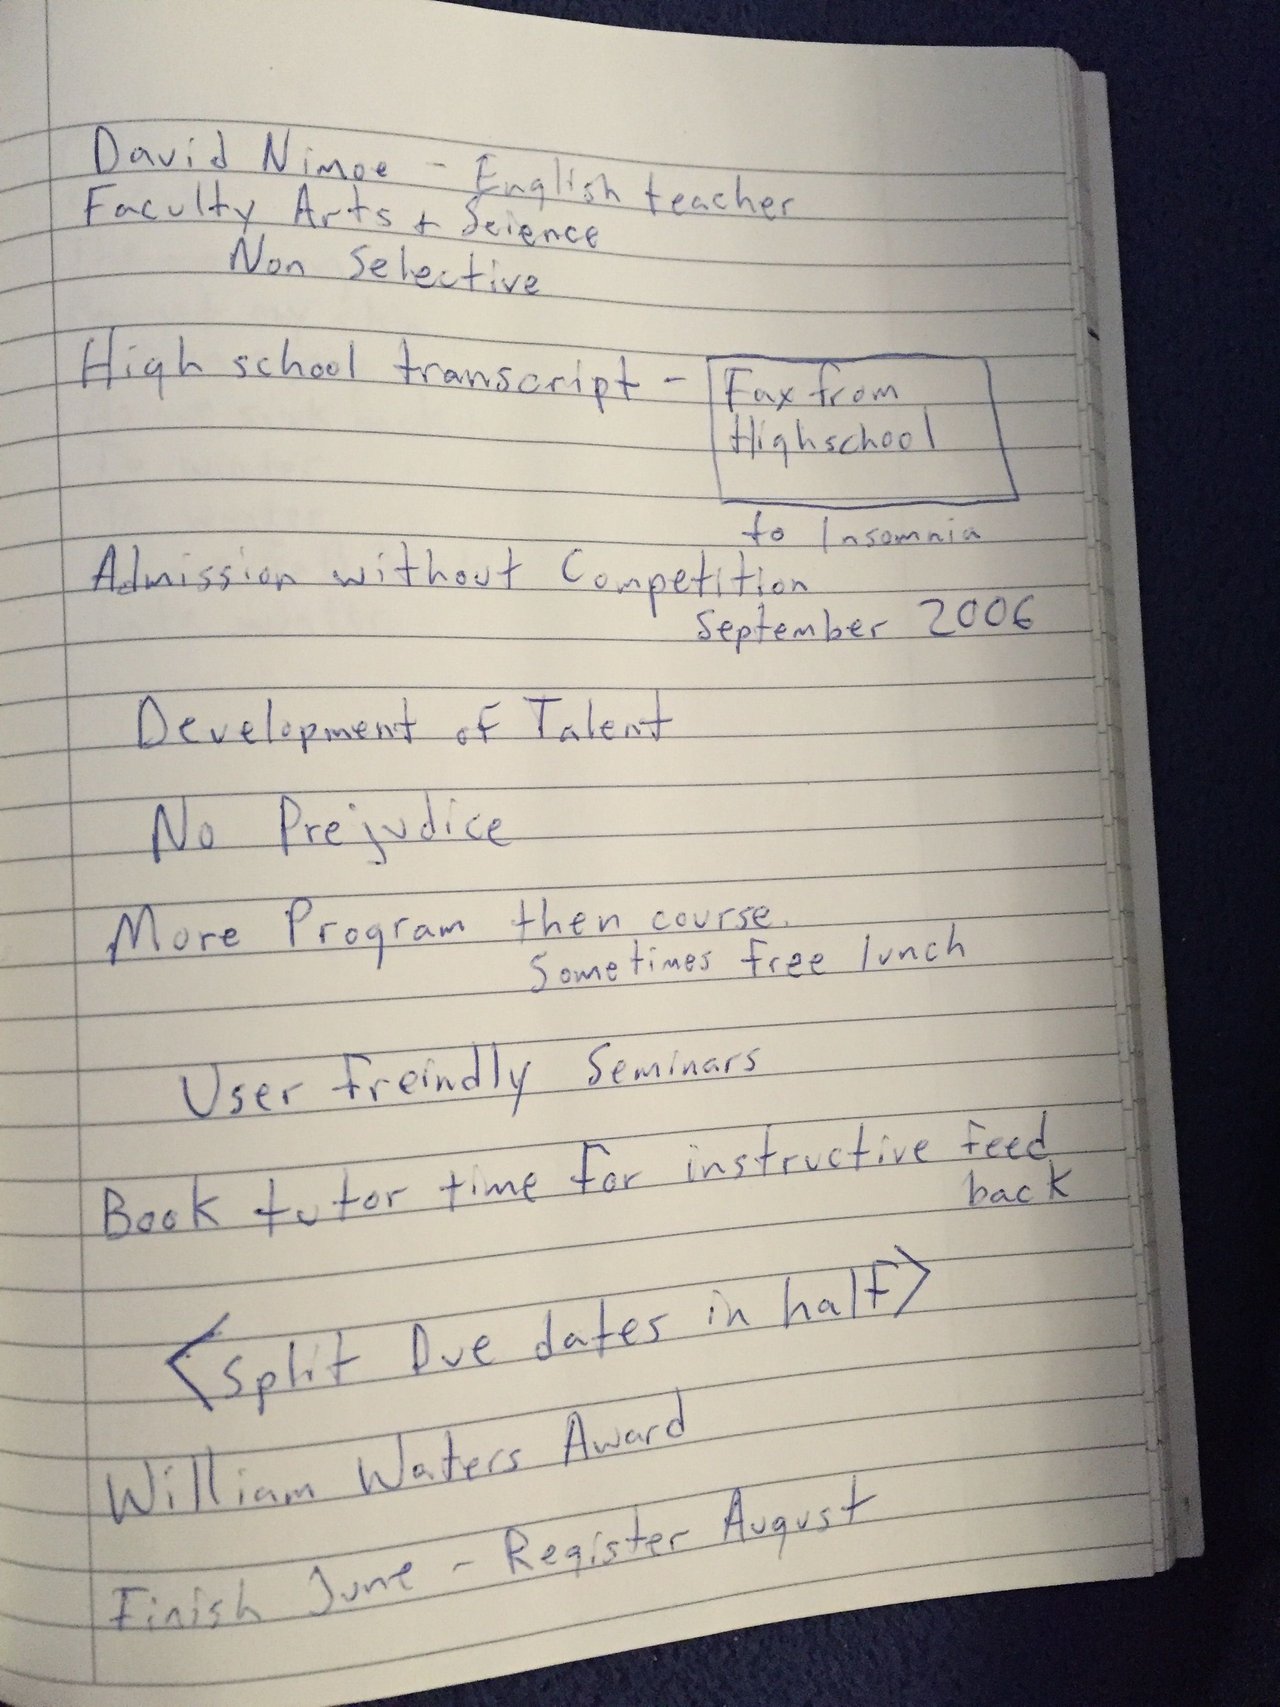 David Nimoe - English teacher
Faculty Arts + Science
Non Selective
High school transcript - Fax from
Highschool
to Insomnia
Admission without Competition
September 2006
Development of Talent
No Prejudice
More Program then course.
Sometimes free lunch
User Freindly Seminars
Book tutor time for instructive feed
back
<Split Due dates in half>
William Waters Award
Finish June - Register August